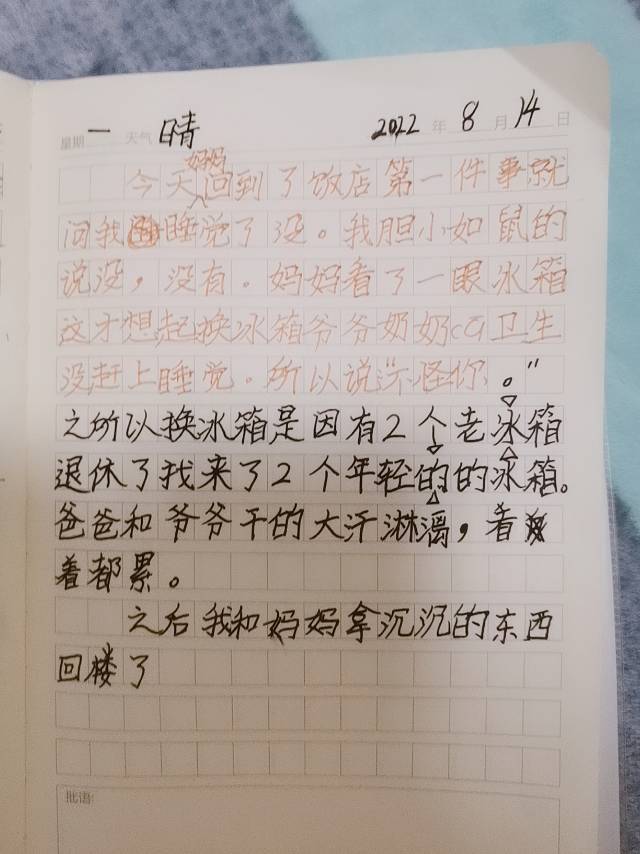 星期 一 天气 晴 2022 年 8 月 14 日
妈妈
今天回到了饭店第一件事就
问我睡觉了没。我胆小如鼠的
说没，没有。妈妈看了一眼冰箱
这才想起换冰箱爷爷奶奶cq卫生
没赶上睡觉。所以说“不怪你。”
之所以换冰箱是因有2个老冰箱
退休了我来了2个年轻的的冰箱。
爸爸和爷爷干的大汗淋漓，看
着都累。
之后我和妈妈拿沉沉的东西
回楼了
批语: